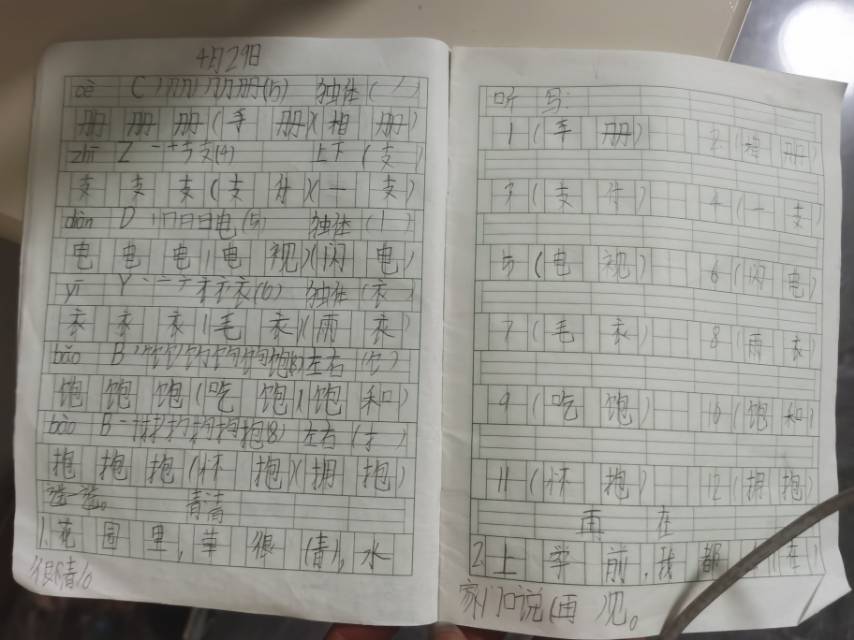 4月29日
cè C 册(5) 独体(丿)
册 册 册(手 册)(相 册)
zhī Z 一十支(4) 上下(支)
支 支 支(支 付)(一 支)
diàn D 丨口日日电(5) 独体(丨)
电 电 电(电 视)(闪 电)
yī Y 丶一ナ衣(6) 独体(衣)
衣 衣 衣(毛 衣)(雨 衣)
bǎo B 饱(8) 左右(饣)
饱 饱 饱(吃 饱)(饱 和)
bào B 一扌抱(8) 左右(扌)
抱 抱 抱(怀 抱)(拥 抱)
选一选。 青清
1.花 园 里,草 很(青),水
很(清)。
听 写:
1(手 册) 2(相 册)
3(支 付) 4(一 支)
5(电 视) 6(闪 电)
7(毛 衣) 8(雨 衣)
9(吃 饱) 10(饱 和)
11(怀 抱) 12(拥 抱)
再 在
2.上 学 前,我 都(在)
家门口说(再)见。